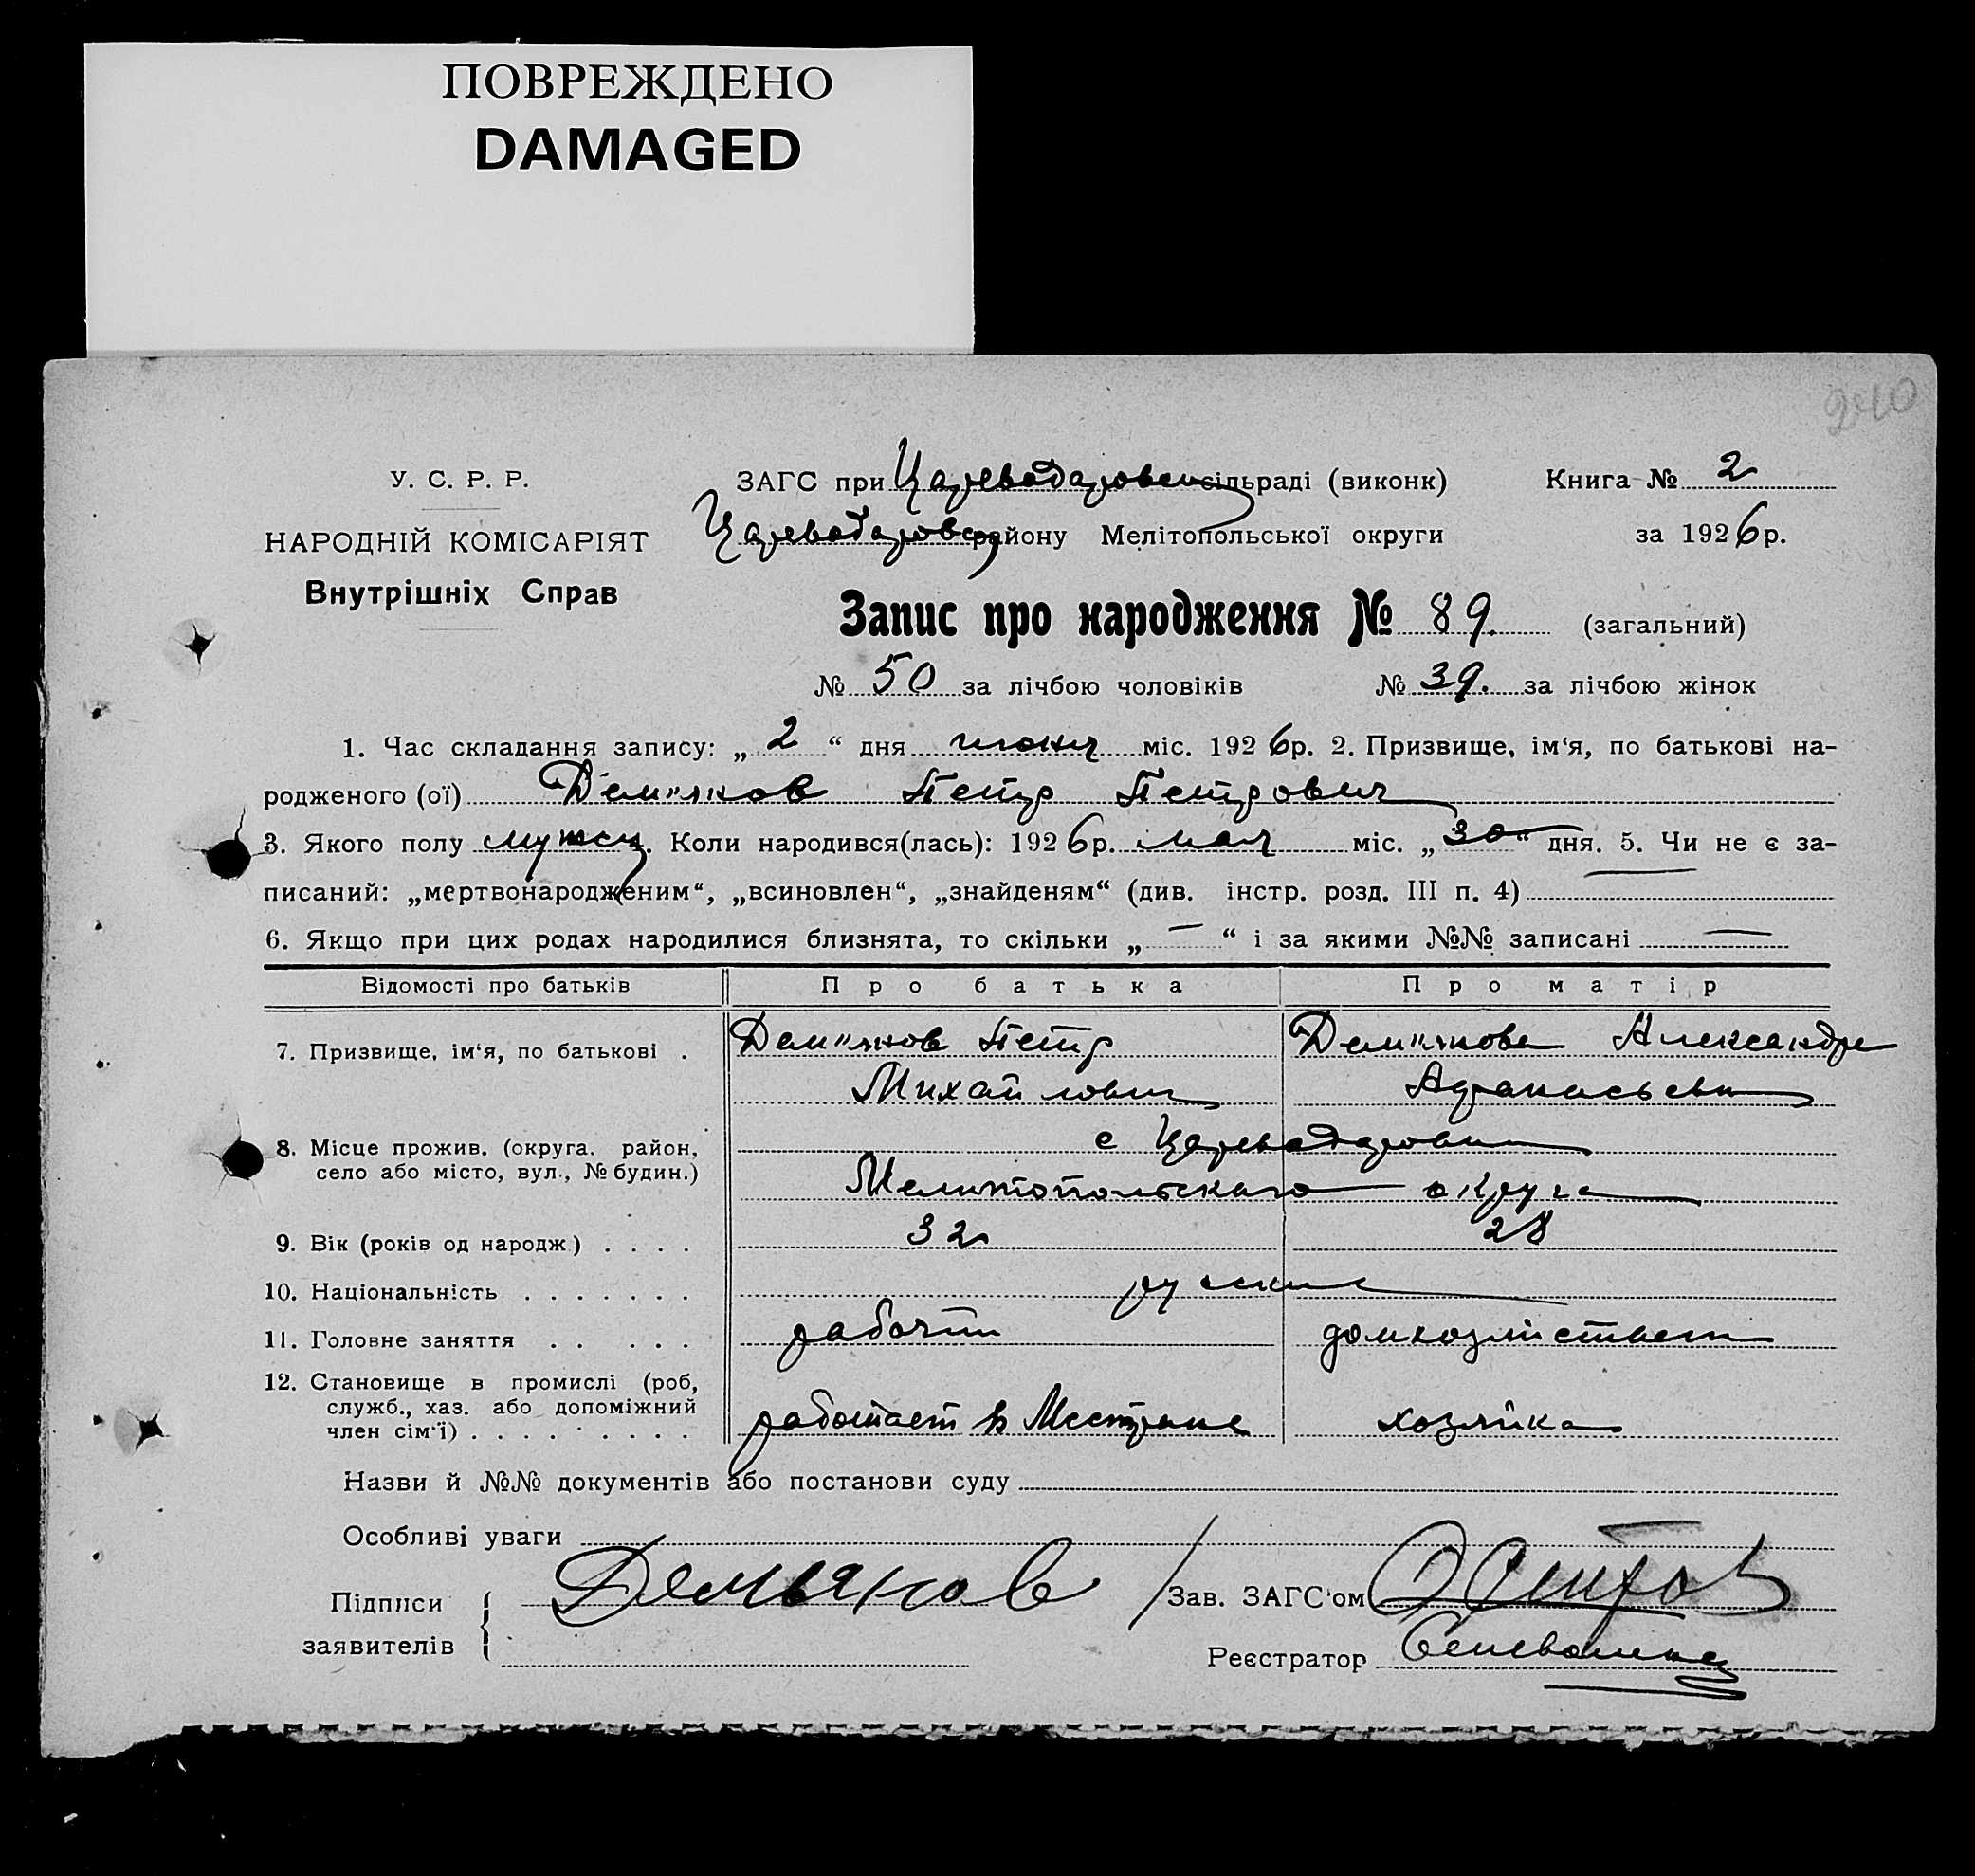 ПОВРЕЖДЕНО
DAMAGED
240
У. С. Р. Р.
НАРОДНІЙ КОМІСАРІЯТ
Внутрішніх Справ
ЗАГС при Цареводаровск сільраді (виконк)
Цареводаровск району Мелітопольської округи
Книга № 2
за 1926 р.
Запис про народження № 89. (загальний)
№ 50 за лічбою чоловіків № 39. за лічбою жінок
1. Час складання запису: „ 2 “ дня июня міс. 1926 р. 2. Призвище, ім‘я, по батькові на-
родженого (ої) Дем"яков Петр Петрович
3. Якого полу мужск. Коли народився(лась): 1926 р. мая міс. „ 30 “ дня. 5. Чи не є за-
писаний: „мертвонародженим“, „всиновлен“, „знайденям“ (див. інстр. розд. III п. 4) —
6. Якщо при цих родах народилися близнята, то скільки „ — “ і за якими №№ записані —
Відомості про батьків Про батька Про матір
7. Призвище, ім‘я, по батькові . Дем"яков Петр Дем"якова Александра
Михайлович Афанасьевн
8. Місце прожив. (округа, район, село або місто, вул., № будин.) с Цареводаровки
Мелитопольскаго округа
9. Вік (років од народж) . . . . 32 28
10. Національність . . . . . . . русские
11. Головне заняття . . . . . рабочий домхозяйством
12. Становище в промислі (роб,
служб., хаз. або допоміжний
член сім‘ї) . . . . . . . . . работает в хозяйка
Назви й №№ документів або постанови суду
Особливі уваги
Підписи
заявителів
Демьяков
Зав. ЗАГС‘ом
Реєстратор